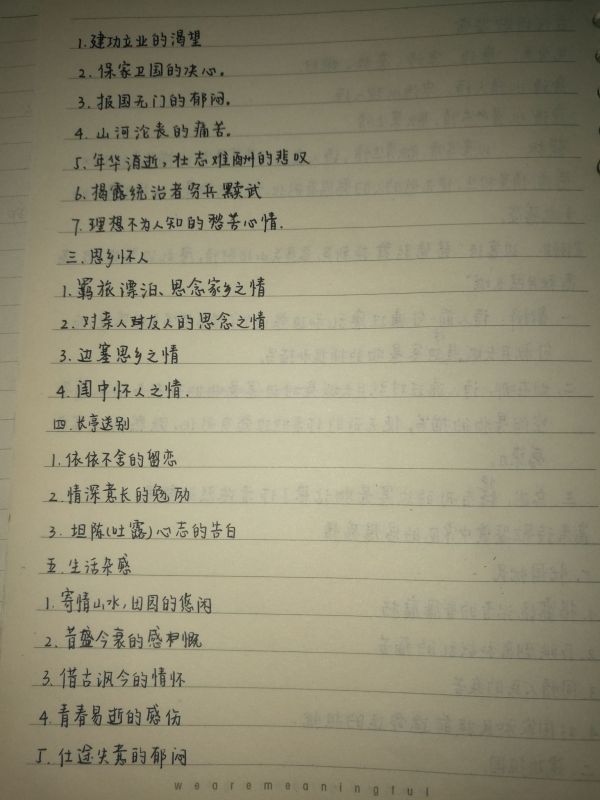 1.建功立业的渴望
2.保家卫国的决心。
3.报国无门的郁闷。
4.山河沦丧的痛苦。
5.年华消逝,壮志难酬的悲叹
6.揭露统治者穷兵黩武
7.理想不为人知的愁苦心情.
三.思乡怀人
1.羁旅漂泊、思念家乡之情
2.对亲人对友人的思念之情
3.边塞思乡之情
4.闺中怀人之情.
四.长亭送别
1.依依不舍的留恋
2.情深意长的勉励
3.坦陈(吐露)心志的告白
五.生活杂感
1.寄情山水,田园的悠闲
2.昔盛今衰的感慨
3.借古讽今的情怀
4.青春易逝的感伤
5.仕途失意的郁闷
wearemeaningful